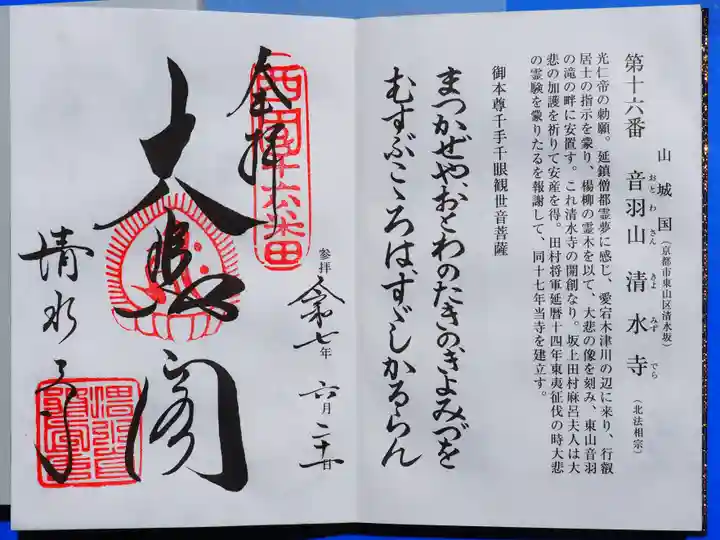 第十六番
山城国（京都市東山区清水坂）
音羽山 清水寺（北法相宗）
おとわさん きよみずでら
光仁帝の勅願。延鎮僧都霊夢に感じ、愛宕木津川の辺に来り、行叡
居士の指示を蒙り、楊柳の霊木を以て、大悲の像を刻み、東山音羽
の滝の畔に安置す。これ清水寺の開創なり。坂上田村麻呂夫人は大
悲の加護を祈りて安産を得。田村将軍延暦十四年東夷征伐の時大悲
の霊験を蒙りたるを報謝して、同十七年当寺を建立す。
御本尊千手千眼観世音菩薩
まつかぜや、おとわのたきのきよみづを
むすぶこゝろは、すゞしかるらん
奉拝
西国第十六番
参拝 令和七年 六月 二十日
大悲閣
清水寺